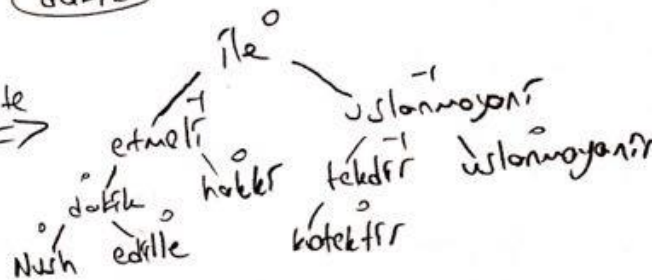 ile 0
te
etmeli -1
uslanmayanı -1
hakkı 0
tekdir -1
uslanmayanın 0
0
Nush 0
edille 0
kötektir 0